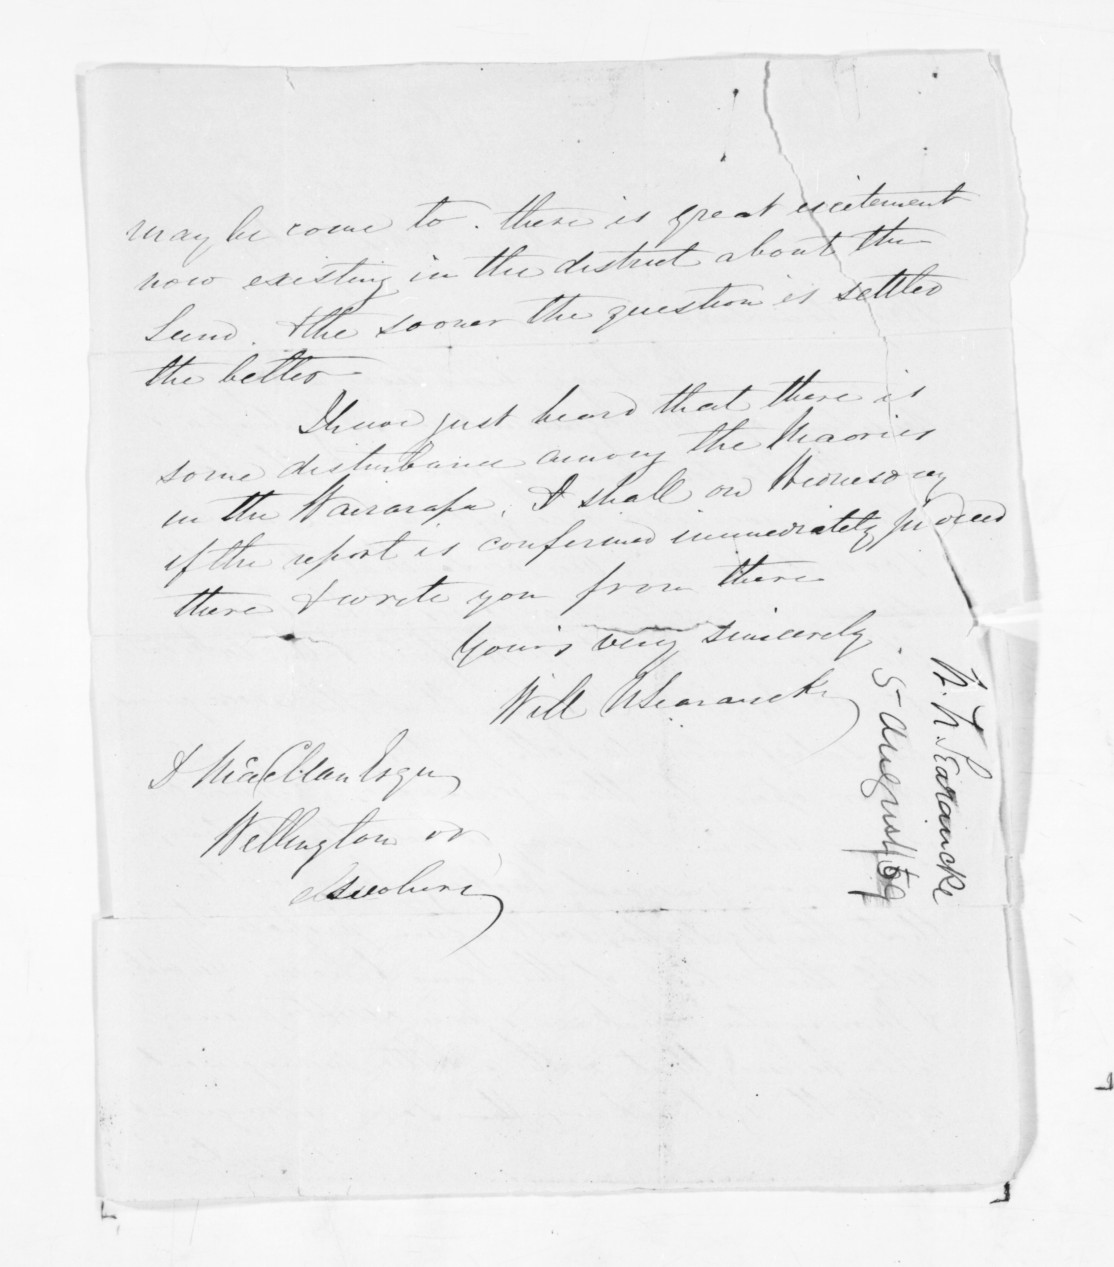 may be come to. there is great excitement
now existing in the district about the
Land. & the sooner the question is settled
the better
I have just heard that there is
some disturbance among the Maories
in the Wairarapa, I shall on Wednesday
if the report is confirmed immediately proceed
there & write you from there
Yours very sincerely
Will N Searancke
D McClean Esqre
Wellington or
elsewhere
W. N. Searancke
5 August/59